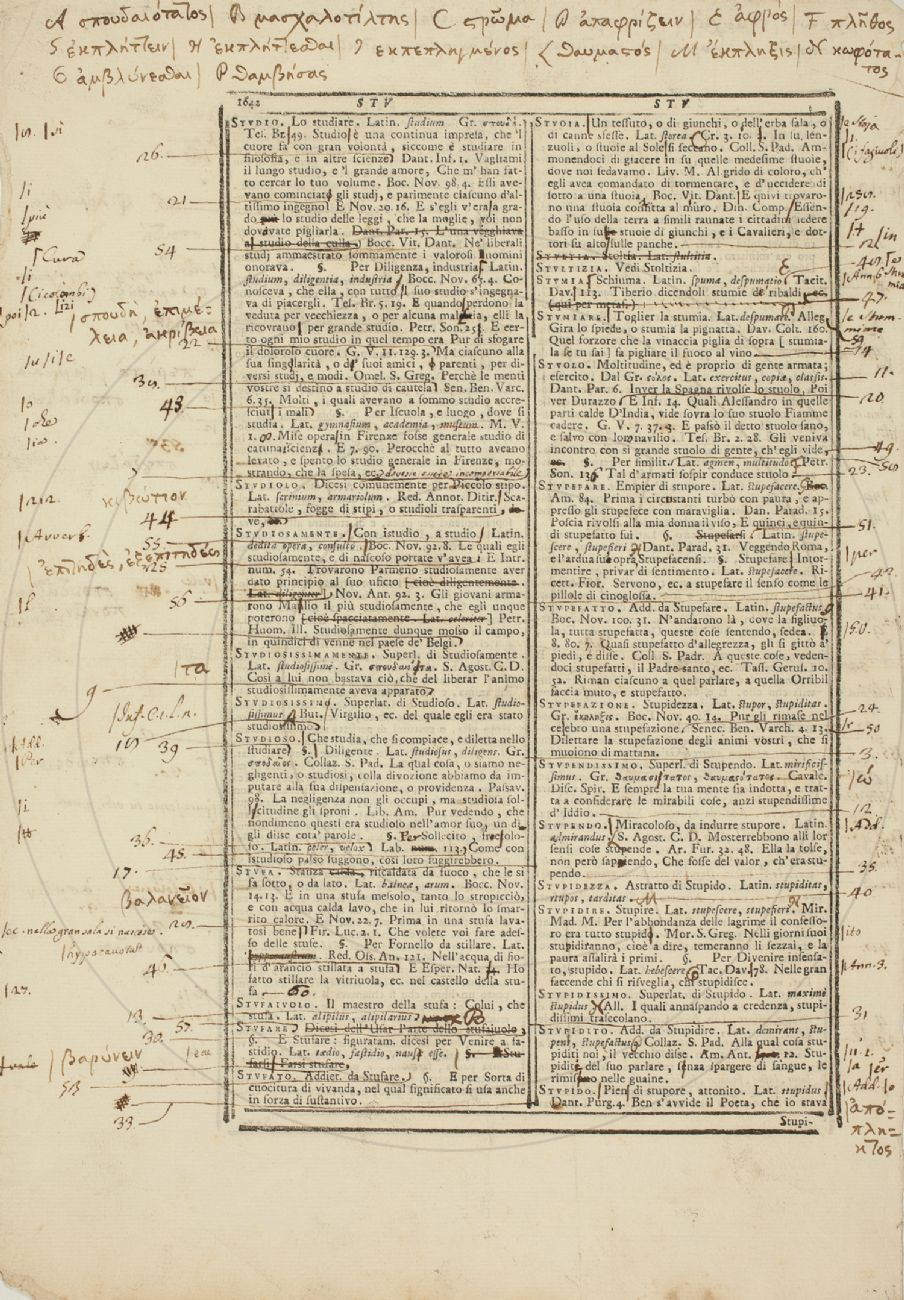 A σπουδαιότατος | B μασχαλοτίλτης | C στρῶμα | D ἀπαφρίζειν | E ἀφρός | F πλῆθος
ἐκπλήττειν | H ἐκπλήττεσθαι | ἐκπεπληγμένος | L θαυμαστός | M ἔκπληξις | N κωφότα-
τος
O ἀμβλύνεσθαι | P θαμβήσας
1642 STV
STVDIO. Lo studiare. Latin. studium Gr.
Tes. Br. 49. Studio è una continua impresa, che 'l
cuore fa con gran volontà, siccome è studiare in
filosofia, e in altre scienze Dant. Inf. 1. Vagliami
il lungo studio, e 'l grande amore, Che m' han fat-
to cercar lo tuo volume. Boc. Nov. 98. 4. Essi ave-
vano cominciato gli studj, e parimente ciascuno d'al-
tissimo ingegno E Nov. 20. 16. E s'egli v'era a gra-
do lo studio delle leggi, che la moglie, voi non
dovavate pigliarla. Dant. Par. 15. L'una vegghiava
al studio della culla. Bocc. Vit. Dant. Ne' liberali
studj ammaestrato sommamente i valorosi uomini
onorava. §. Per Diligenza, industria Latin.
studium, diligentia, industria Bocc. Nov. 65. 4. Co-
nosceva, che ella, con tutto il suo studio s'ingegna-
va di piacergli. Tes. Br. 5. 19. E quando perdono la
veduta per vecchiezza, o per alcuna malattia, elli la
ricovrano per grande studio. Petr. Son. 251. E cer-
to ogni mio studio in quel tempo era Pur di sfogare
il doloroso cuore. G. V. 11. 129. 3. Ma ciascuno alla
sua singolarità, o de' suoi amici, o parenti, per di-
versi studj, e modi. Omel. S. Greg. Perchè le menti
vostre si destino a studio di cautela Sen. Ben. Varc.
6. 35. Molti, i quali avevano a sommo studio accre-
sciuti i mali §. Per Iscuola, e luogo, dove si
studia. Lat. gymnasium, academia, museum. M. V.
Mise opera in Firenze fosse generale studio di
E 7. 90. Perocchè al tutto aveano
levato, e spento lo studio generale in Firenze, mo-
strando, che la spesa, ec.
STVDIOLO. Dicesi comunemente per Piccolo stipo.
Lat. scrinium, armariolum. Red. Annot. Ditir. Sca-
rabattole, fogge di stipi, o studioli trasparenti,
ve,
STVDIOSAMENTE. Con istudio, a studio Latin.
dedita opera, consulto. Boc. Nov. 92. 8. Le quali egli
studiosamente, e di nascoso portate v'avea E Intr.
num. 54. Trovarono Parmeno studiosamente aver
dato principio al suo uficio cioè diligentemente.
Lat. diligenter Nov. Ant. 92. 3. Gli giovani arma-
rono Masilio il più studiosamente, che egli unque
poterono cioè spacciatamente. Lat. celeriter Petr.
Huom. Ill. Studiosamente dunque mosso il campo,
in quindici dì venne nel paese de' Belgi
STVDIOSISSIMAMENTE. Superl. di Studiosamente.
Lat. studiosissime. Gr. S. Agost. C. D.
Così a lui non bastava ciò, che del liberar l'animo
studiosissimamente aveva apparato
STVDIOSISSIMO. Superlat. di Studioso. Lat. studio-
sissimus But. Virgilio, ec. del quale egli era stato
studiosissimo
STVDIOSO. Che studia, che si compiace, e diletta nello
studiare §. Diligente. Lat. studiosus, diligens. Gr.
σπουδαῖος. Collaz. S. Pad. La qual cosa, o siamo ne-
gligenti, o studiosi, colla divozione abbiamo da im-
putare alla sua dispensazione, o providenza. Passav.
98. La negligenza non gli occupi, ma studiosa sol-
licitudine gli sproni. Lib. Am. Pur vedendo, che
nondimeno questi era studiolo nell'amor suo, un dì
gli disse cota' parole. §. Per Sollecito, frettolo-
so. Latin. celer, velox Lab. num. 113. Come con
istudioso passo fuggono, così loro fuggirebbero.
STVFA. Stanza calda, riscaldata da fuoco, che le si
fa sotto, o da lato. Lat. balnea, arum. Bocc. Nov.
14. 13. E in una stufa messolo, tanto lo stropicciò,
e con acqua calda lavò, che in lui ritornò lo smar-
rito calore. E Nov. 22. 7. Prima in una stufa lava-
tosi bene Fir. Luc. 2. 1. Che volete voi fare ades-
so delle stufe. §. Per Fornello da stillare. Lat.
hypocaustum. Red. Oss. An. 121. Nell'acqua di fio-
ri d'arancio stillata a stufa E Esper. Nat. 4. Ho
fatto stillare la vitriuola, ec. nel castello della stu-
fa 60.
STVFAIVOLO. Il maestro della stufa: Colui, che
stufa. Lat. alipilus, alipilarius B
STVFARE Dicesi dell'Usar Parte dello stufaiuolo,
§. E Stufare: figuratam. dicesi per Venire a fa-
stidio. Lat. tædio, fastidio, nausea esse. §. Stu-
farsi Farsi stufare,
STVFATO. Addiet. da Stufare §. E per Sorta di
cuocitura di vivanda, nel qual significato si usa anche
in forza di sustantivo.
STV
STVOIA. Un tessuto, o di giunchi, o dell'erba sala, o
di canne fesse. Lat. storea Cr. 3. 10. In su, len-
zuoli, o stuoie al Sole si seccano. Coll. S. Pad. Am-
monendoci di giacere in su quelle medesime stuoie,
dove noi sedavamo. Liv. M. Al grido di coloro, ch'
egli avea comandato di tormentare, e d'uccidere di
sotto a una stuoia Boc. Vit. Dant. E quivi trovaro-
no una stuoia confitta al muro. Din. Comp. Essen-
do l'uso della terra a simili raunate i cittadini sedere
basso in su le stuoie di giunchi, e i Cavalieri, e dot-
tori su alto sulle panche.
STVLTIZIA. Stoltia. Lat. stultitia.
STVLTIZIA. Vedi Stoltizia.
STVMIA Schiuma. Latin. spuma, despumatio Tacit.
Dav. 113. Tiberio dicendoli stumie de' ribaldi ec.
(qui per metaf.)
STVMIARE. Toglier la stumia. Lat. despumare. Alleg.
Gira lo spiede, o stumia la pignatta. Dav. Colt. 160.
Quel forzore che la vinaccia piglia di sopra [ stumia-
la se tu sai ] fa pigliare il fuoco al vino
STVOLO. Moltitudine, ed è proprio di gente armata;
esercito. Dal Gr. στόλος. Lat. exercitus, copia, classis.
Dant. Par. 6. Inver la Spagna rivolse lo stuolo, Poi
ver Durazzo E Inf. 14. Quali Alessandro in quelle
parti calde D'India, vide sovra lo suo stuolo Fiamme
cadere. G. V. 7. 37. 3. E passò il detto stuolo sano,
e salvo con loro navilio. Tes. Br. 2. 28. Gli veniva
incontro con sì grande stuolo di gente, ch'egli vide,
ec. §. Per similit. Lat. agmen, multitudo Petr.
Son. 136 Tal d'armati sospir conduce stuolo
STVPEFARE. Empier di stupore. Lat. stupefacere. Boc.
Am. 84. Prima i circustanti turbò con paura, e ap-
presso gli stupefece con maraviglia. Dan. Parad. 15.
Poscia rivolsi alla mia donna il viso, E quinci, e quin-
di stupefatto fui. §. Stupefarsi Latin. stupe-
scere, stupefieri Dant. Parad. 31. Veggendo Roma,
e l'ardua sua opra Stupefacensi. §. Stupefare Intor-
mentire, privar di sentimento. Lat. stupefacere. Ri-
cett. Fior. Servono, ec. a stupefare il senso come le
pillole di cinoglossa.
STVPEFATTO. Add. da Stupefare. Latin. stupefactus
Boc. Nov. 100. 31. N'andarono là, dove la figliuo-
la, tutta stupefatta, queste cose sentendo, sedea.
80. 7. Quasi stupefatto d'allegrezza, gli si gittò a
piedi, e disse. Coll. S. Padr. A queste cose, veden-
doci stupefatti, il Padre santo, ec. Tass. Gerus. 10.
52. Riman ciascuno a quel parlare, a quella Orribil
faccia muto, e stupefatto.
STVPEFAZIONE. Stupidezza. Lat. stupor, stupiditas.
Gr. ἔκπληξις. Boc. Nov. 40. 14. Pur gli rimase nel
celebro una stupefazione Senec. Ben. Varch. 4. 13.
Dilettare la stupefazione degli animi vostri, che si
muoiono di mattana.
STVPENDISSIMO. Superl. di Stupendo. Lat. mirificis-
simus. Gr. Cavalc.
Disc. Spir. E sempre la tua mente sia indotta, e trat-
ta a considerare le mirabili cose, anzi stupendissime
d' Iddio.
STVPENDO. Miracoloso, da indurre stupore. Latin.
admirandus S. Agost. C. D. Mosterrebbono alli lor
sensi cose stupende. Ar. Fur. 22. 48. Ella la tolse,
non però sapiendo, Che fosse del valor, ch'era stu-
pendo.
STVPIDEZZA. Astratto di Stupido. Latin. stupiditas,
stupor, tarditas.
STVPIDIRE. Stupire. Lat. stupescere, stupefieri. Mir.
Mad. M. Per l'abbondanza delle lagrime il confesso-
ro era tutto stupido. Mor. S. Greg. Nelli giorni suoi
stupidiranno, cioè a dire, temeranno li sezzai, e la
paura assalirà i primi. §. Per Divenire insensa-
to, stupido. Lat. hebescere Tac. Dav. 78. Nelle gran
faccende chi si risveglia, chi stupidisce.
STVPIDISSIMO. Superlat. di Stupido. Lat. maxime
stupidus All. I quali annaspando a credenza, stupi-
dissimi trasecolano.
STVPIDITO. Add. da Stupidire. Lat. demirans, stu-
pens, stupefactus Collaz. S. Pad. Alla qual cosa stu-
piditi noi, il vecchio disse. Am. Ant. 12. Stu-
pidite del suo parlare, senza spargere di sangue, le
rimisono nelle guaine.
STVPIDO. Pien di stupore, attonito. Lat. stupidus
Dant. Purg. 4. Ben s'avvide il Poeta, che io stava
Stupi-
26.
21
54
σπουδή, ἐπιμέ-
λεια, ἀκρίβεια
22
39
48
κιβώτιον
44
55
ἐπιτηδές, ἐξεπιτηδές
56
9
39
36.
45.
17.
βαλανεῖον
hypocaustum
46
13
57.
30.
βαρύνειν
53
33
47.
59
14
11.
20
49.
23.
51.
42
41.
24.
50
3.
12
35.
40
31
ἀπό-
πλη-
κτος